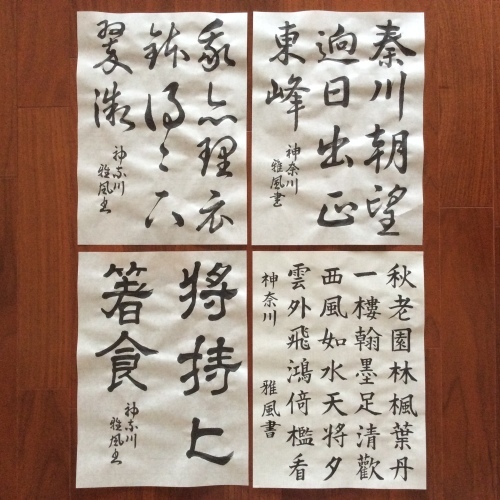 秦川朝望
迥日出正
東峰
神奈川
雅風書
我亦理衣
鉢得々下
翠微
神奈川
雅風書
秋老園林楓葉丹
一樓翰墨足清歡
西風如水天將夕
雲外飛鴻倚檻看
神奈川 雅風書
將持上
箸食
神奈川
雅風書